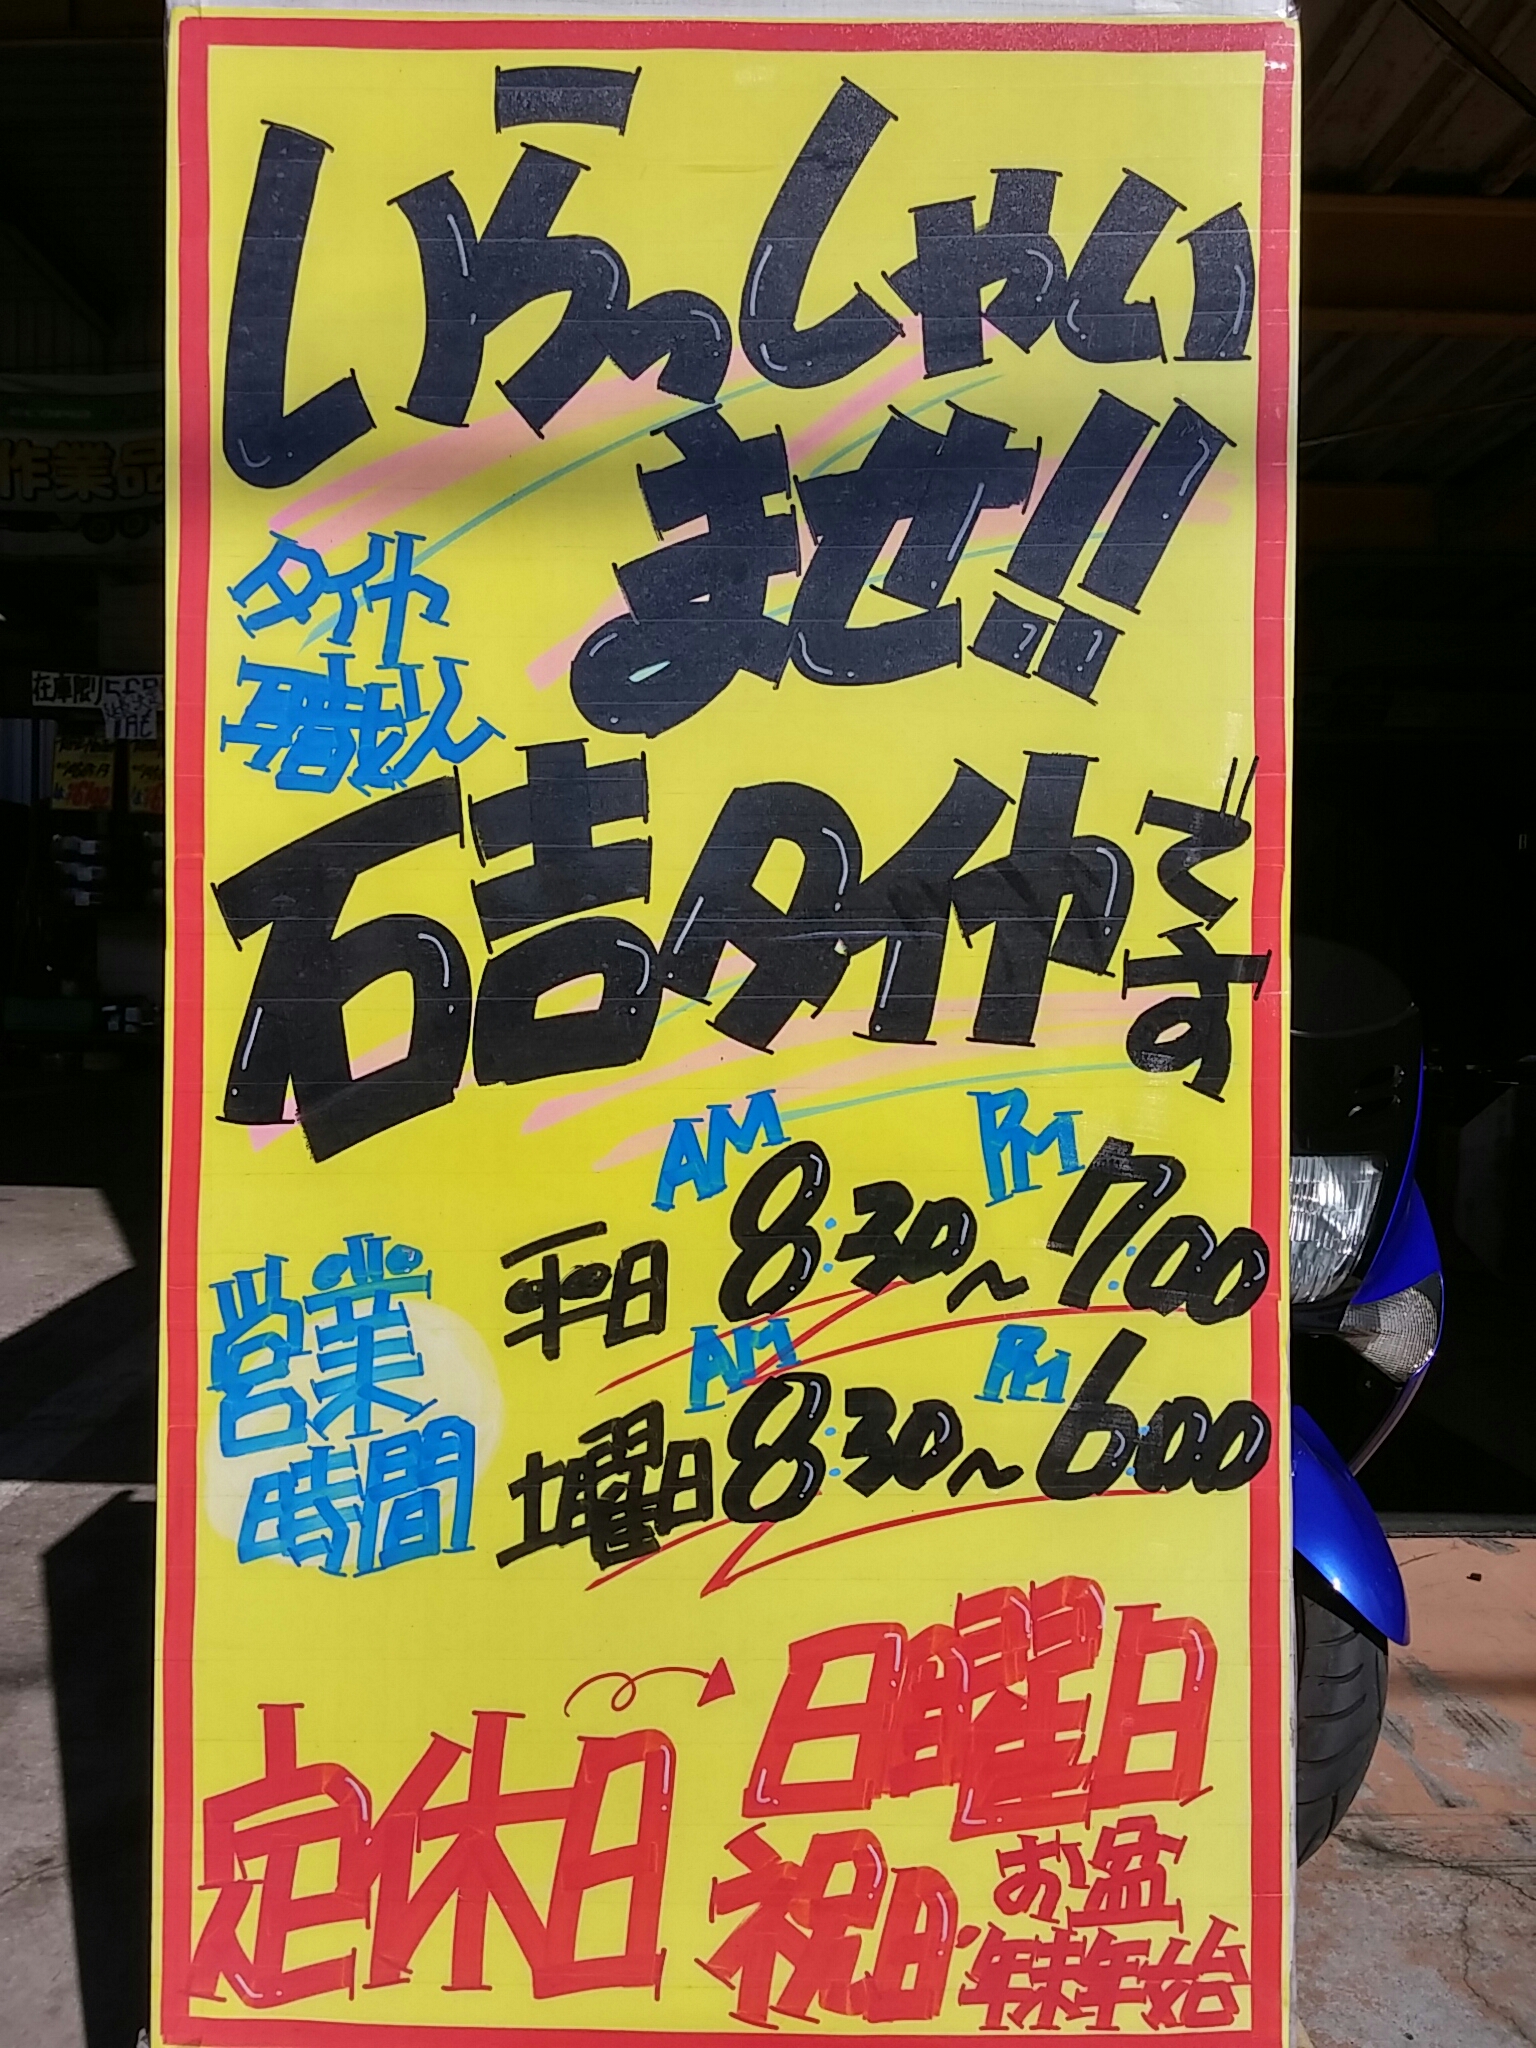 いらっしゃい
ませ!!
タイヤ
職人
石吉タイヤです
営業
時間
平日 AM 8:30～PM 7:00
土曜日 AM 8:30～PM 6:00
定休日
日曜日
祝日・お盆
年末年始
作業品
在庫限り